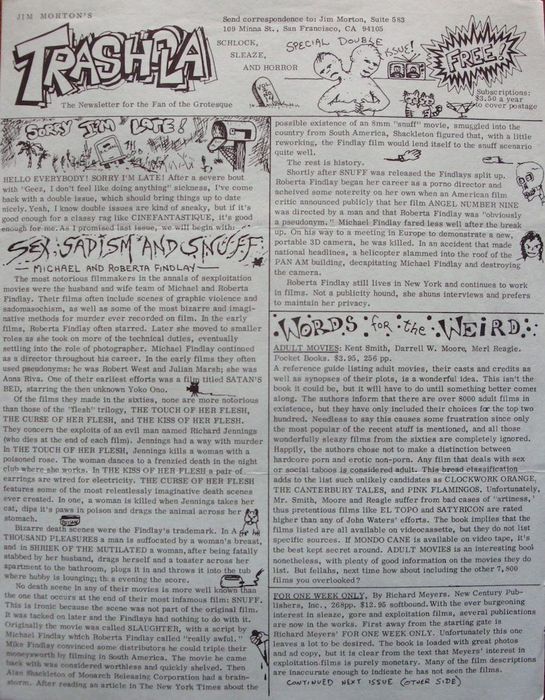 JIM MORTON'S
TRASHOLA
The Newsletter for the Fan of the Grotesque
Send correspondence to: Jim Morton, Suite 583
109 Minna St., San Francisco, CA 94105
SCHLOCK,
SLEAZE,
AND HORROR
SPECIAL DOUBLE ISSUE!
FREE!
Subscriptions:
$3.50 a year
to cover postage
SORRY I'M LATE!
HELLO EVERYBODY! SORRY I'M LATE! After a severe bout
with "Geez, I don't feel like doing anything" sickness, I've come
back with a double issue, which should bring things up to date
nicely. Yeah, I know double issues are kind of sneaky, but if it's
good enough for a classy rag like CINEFANTASTIQUE, it's good
enough for me. As I promised last issue, we will begin with:
SEX, SADISM AND SNUFF:
— MICHAEL AND ROBERTA FINDLAY—
The most notorious filmmakers in the annals of sexploitation
movies were the husband and wife team of Michael and Roberta
Findlay. Their films often include scenes of graphic violence and
sadomasochism, as well as some of the most bizarre and imagi-
native methods for murder ever recorded on film. In the early
films, Roberta Findlay often starred. Later she moved to smaller
roles as she took on more of the technical duties, eventually
settling into the role of photographer. Michael Findlay continued
as a director throughout his career. In the early films they often
used pseudonyms: he was Robert West and Julian Marsh; she was
Anna Riva. One of their earliest efforts was a film titled SATAN'S
BED, starring the then unknown Yoko Ono.
Of the films they made in the sixties, none are more notorious
than those of the "flesh" trilogy, THE TOUCH OF HER FLESH,
THE CURSE OF HER FLESH, and THE KISS OF HER FLESH.
They concern the exploits of an evil man named Richard Jennings
(who dies at the end of each film). Jennings had a way with murder
In THE TOUCH OF HER FLESH, Jennings kills a woman with a
poisoned rose. The woman dances to a frenzied death in the night
club where she works. In THE KISS OF HER FLESH a pair of
earrings are wired for electricity. THE CURSE OF HER FLESH
features some of the most relentlessly imaginative death scenes
ever created. In one, a woman is killed when Jennings takes her
cat, dips it's paws in poison and drags the animal across her
stomach.
Bizarre death scenes were the Findlay's trademark. In A
THOUSAND PLEASURES a man is suffocated by a woman's breast,
and in SHRIEK OF THE MUTILATED a woman, after being fatally
stabbed by her husband, drags herself and a toaster across her
apartment to the bathroom, plugs it in and throws it into the tub
where hubby is lounging; thus evening the score.
No death scene in any of their movies is more well known than
the one that occurs at the end of their most infamous film: SNUFF.
This is ironic because the scene was not part of the original film.
It was tacked on later and the Findlays had nothing to do with it.
Originally the movie was called SLAUGHTER, with a script by
Michael Findlay which Roberta Findlay called "really awful."
Mike Findlay convinced some distributors he could triple their
moneysworth by filming in South America. The movie he came
back with was considered worthless and quickly shelved. Then
Alan Shackleton of Monarch Releasing Corporation had a brain-
storm. After reading an article in The New York Times about the
possible existence of an 8mm "snuff" movie, smuggled into the
country from South America, Shackleton figured that, with a little
reworking, the Findlay film would lend itself to the snuff scenario
quite well.
The rest is history.
Shortly after SNUFF was released the Findlays split up.
Roberta Findlay began her career as a porno director and
acheived some notoreity on her own when an American film
critic announced publicly that her film ANGEL NUMBER NINE
was directed by a man and that Roberta Findlay was "obviously
a pseudonym." Michael Findlay fared less well after the break
up. On his way to a meeting in Europe to demonstrate a new,
portable 3D camera, he was killed. In an accident that made
national headlines, a helicopter slammed into the roof of the
PAN AM building, decapitating Michael Findlay and destroying
the camera.
Roberta Findlay still lives in New York and continues to work
in films. Not a publicity hound, she shuns interviews and prefers
to maintain her privacy.
WORDS for the WEIRD:
ADULT MOVIES: Kent Smith, Darrell W. Moore, Merl Reagle.
Pocket Books. $3.95, 256 pp.
A reference guide listing adult movies, their casts and credits as
well as synopses of their plots, is a wonderful idea. This isn't the
book it could be, but it will have to do until something better comes
along. The authors inform that there are over 8000 adult films in
existence, but they have only included their choices for the top two
hundred. Needless to say this causes some frustration since only
the most popular of the recent stuff is mentioned, and all those
wonderfully sleazy films from the sixties are completely ignored.
Happily, the authors chose not to make a distinction between
hardcore porn and erotic non-porn. Any film that deals with sex
or social taboos is considered adult. This broad classification
adds to the list such unlikely candidates as CLOCKWORK ORANGE,
THE CANTERBURY TALES, and PINK FLAMINGOS. Unfortunately,
Mr. Smith, Moore and Reagle suffer from bad cases of 'artiness,'
thus pretentious films like EL TOPO and SATYRICON are rated
higher than any of John Waters' efforts. The book implies that the
films listed are all available on videocassette, but they do not list
specific sources. If MONDO CANE is available on video tape, it's
the best kept secret around. ADULT MOVIES is an interesting book
nonetheless, with plenty of good information on the movies they do
list. But fellahs, next time how about including the other 7,800
films you overlooked?
FOR ONE WEEK ONLY, By Richard Meyers. New Century Pub-
lishers, Inc., 268pp. $12.95 softbound. With the ever burgeoning
interest in sleaze, gore and exploitation films, several publications
are now in the works. First away from the starting gate is
Richard Meyers' FOR ONE WEEK ONLY. Unfortunately this one
leaves a lot to be desired. The book is loaded with great photos
and ad copy, but it is clear from the text that Meyers' interest in
exploitation films is purely monetary. Many of the film descriptions
are inaccurate enough to indicate he has not seen the films.
CONTINUED NEXT ISSUE (OTHER SIDE)